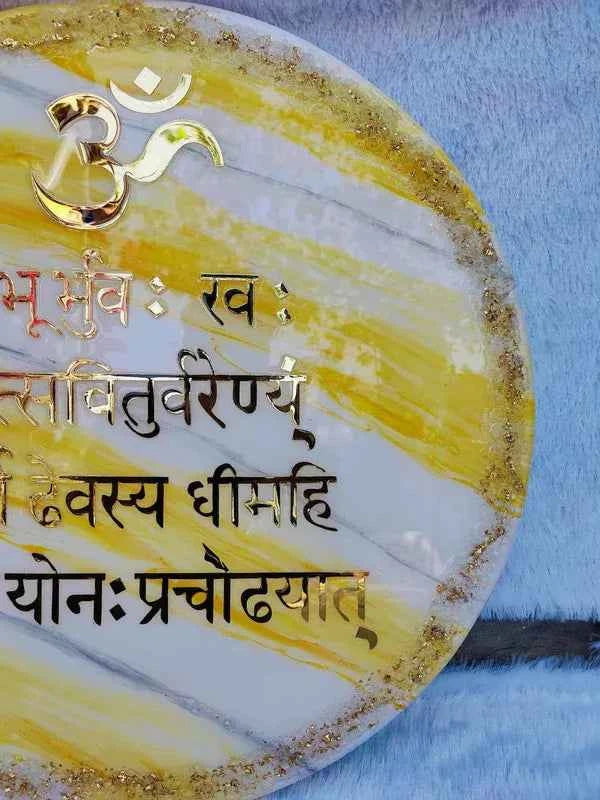 ॐ
भूर्भुवः रवः
त्सवितुर्वरेण्यं
ढेवस्य धीमहि
योनःप्रचोढयात्